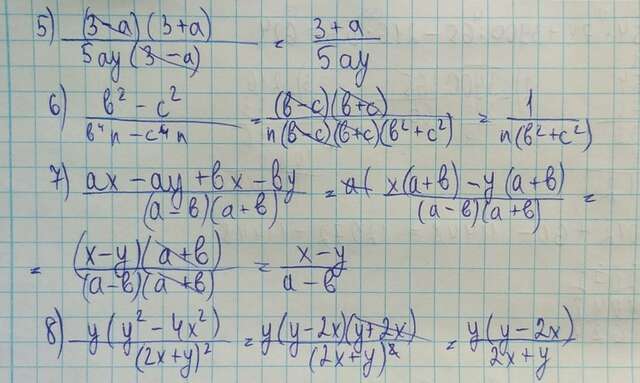 5) (3-a)(3+a) / 5ay(3-a) = 3+a / 5ay
6) в² - c² / в⁴n - c⁴n = (в-c)(в+c) / n(в-c)(в+c)(в²+c²) = 1 / n(в²+c²)
7) ax - ay + вx - вy / (a-в)(a+в) = x(a+в) - y(a+в) / (a-в)(a+в) =
= (x-y)(a+в) / (a-в)(a+в) = x-y / a-в
8) y(y² - 4x²) / (2x+y)² = y(y-2x)(y+2x) / (2x+y)² = y(y-2x) / 2x+y